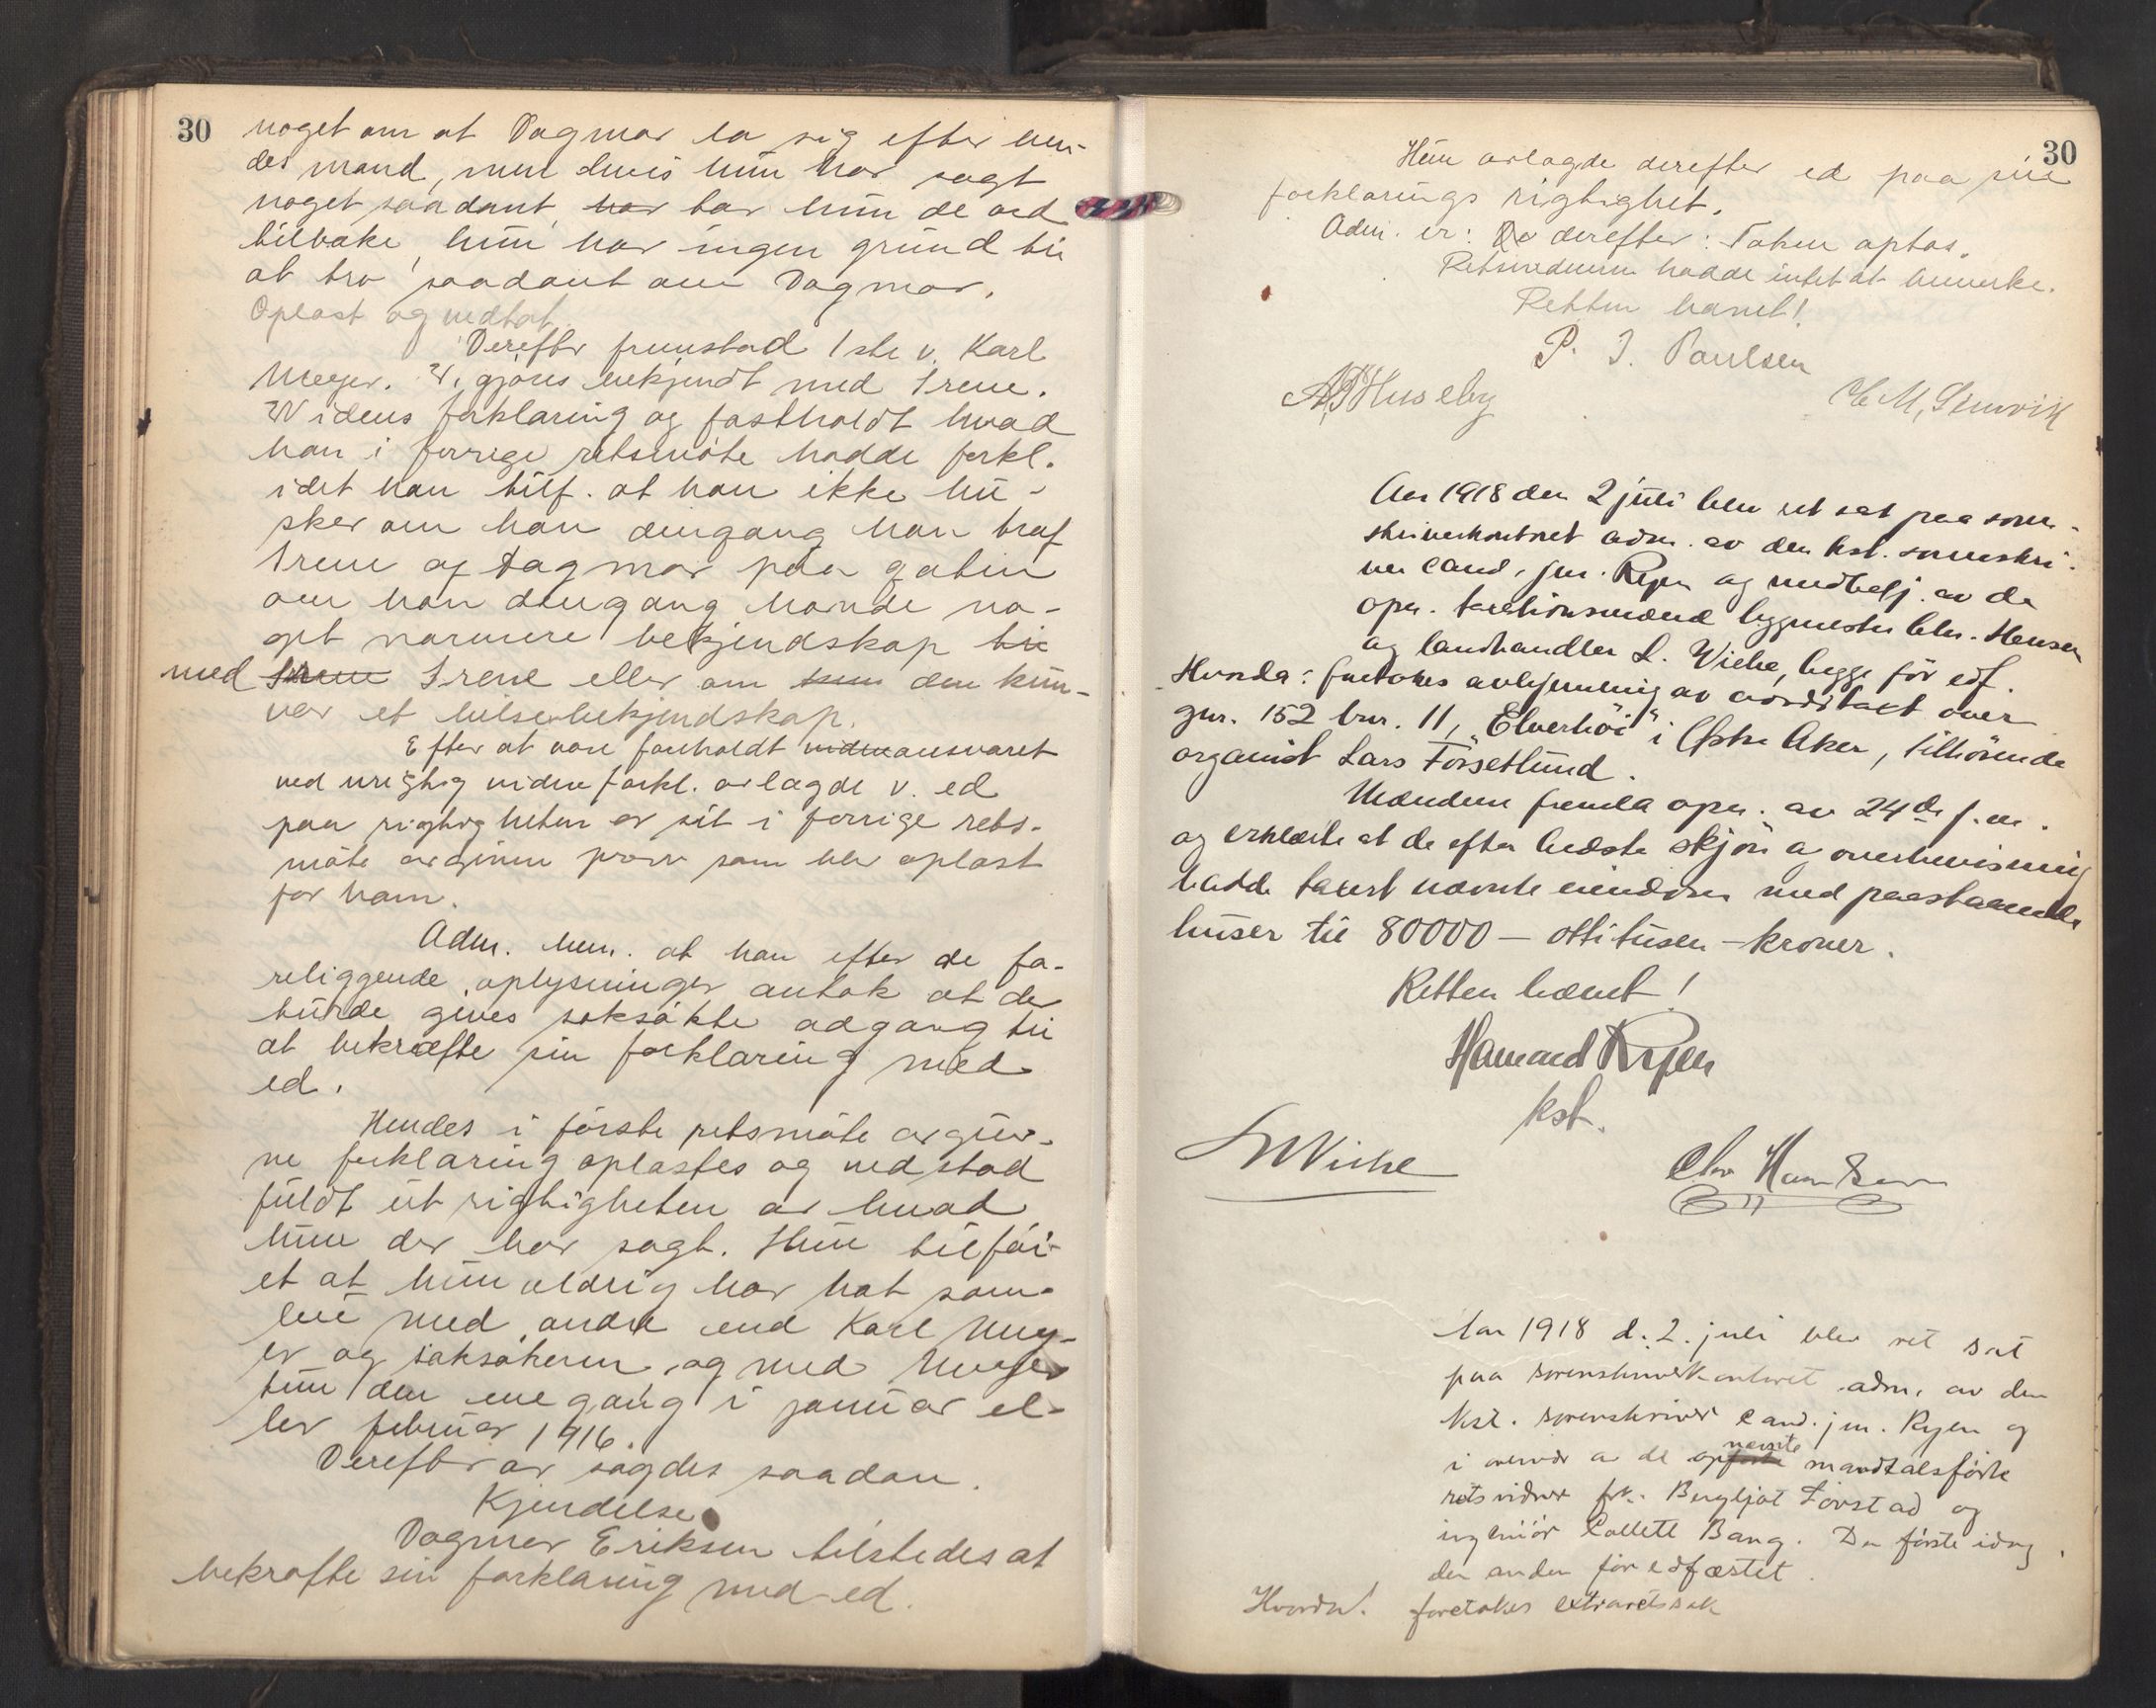 30
noget om at Dagmar la sig efter hen-
des mand, men hvis hun har sagt
noget saadant har tar hun de ord
tilbake, hun har ingen grund til
at tro saadant om Dagmar.
Oplæst og vedtat.
Derefter fremstod 1ste v. Karl
Meyer. V. gjøres bekjendt med Irene
Widens forklaring og fastholdt hvad
han i forrige retsmøte hadde forkl.
idet han tilf. at han ikke hu-
sker om han dengang han traf
Irene og Dagmar paa gaten
om han dengang havde no-
get nærmere bekjendskap til
med Irene Irene eller om den kun
var et hilsebekjendskap.
Efter at være foreholdt vidneansvaret
ved urigtig vidneforkl. avlagde v. ed
paa rigtigheten av sit i forrige rets-
møte avgivne prov som blev oplæst
for ham.
Adm. bem. at han efter de fo-
religgende oplysninger antok at der
burde gives saksøkte adgang til
at bekræfte sin forklaring med
ed.
Hendes i første retsmøte avgiv-
ne forklaring oplæstes og vedstod
fuldt ut rigtigheten av hvad
hun der har sagt. Hun tilføi-
et at hun aldrig har hat sam-
leie med andre end Karl Mey-
er og saksøkeren og med Meyer
kun den ene gang i januar el-
ler februar 1916.
Derefter avsagdes saadan
Kjendelse
Dagmar Eriksen tilstedes at
bekræfte sin forklaring med ed.
30
Hun avlagde derefter ed paa sin
forklarings rigtighet.
Adm. er: De derefter: Saken optas.
Retsvidnerne hadde intet at bemerke.
Retten hævet!
P. I. Paulsen
Huseby
Aar 1918 den 2 juli blev ret sat paa soren-
skriverkontoret adm. av den kst. sorenskri-
ver cand. jur. Ryen og medbetj. av de
opn. takstmænd byggmester Chr. Hansen
og landhandler L. Wiche, begge før edf.
Hvorda: foretokes avhjemling av takst over
gnr. 152 bnr. 11, "Elverhöi" i Østre Aker, tilhörende
organist Lars Forsetlund.
Mændene fremla opn. av 24de f.m.
og erklærte at de efter bedste skjön og overbevisning
hadde taxert nævnte eiendom med paastaaende
huser til 80000 – ottitusen – kroner.
Retten hævet!
Hamand Ryen
kst.
L Wiche
Chr Hansen
Aar 1918 d. 2. juli blev ret sat
paa sorenskriverkontoret adm. av den
kst. sorenskriver cand. jur. Ryen og
i overvær av de nævnte mandtalsførte
retsvidner frk. Bergljot Förstad og
ingeniör Collett Bang. Den förste idag,
den anden för edfæstet.
Hvorda! foretokes extraretssak